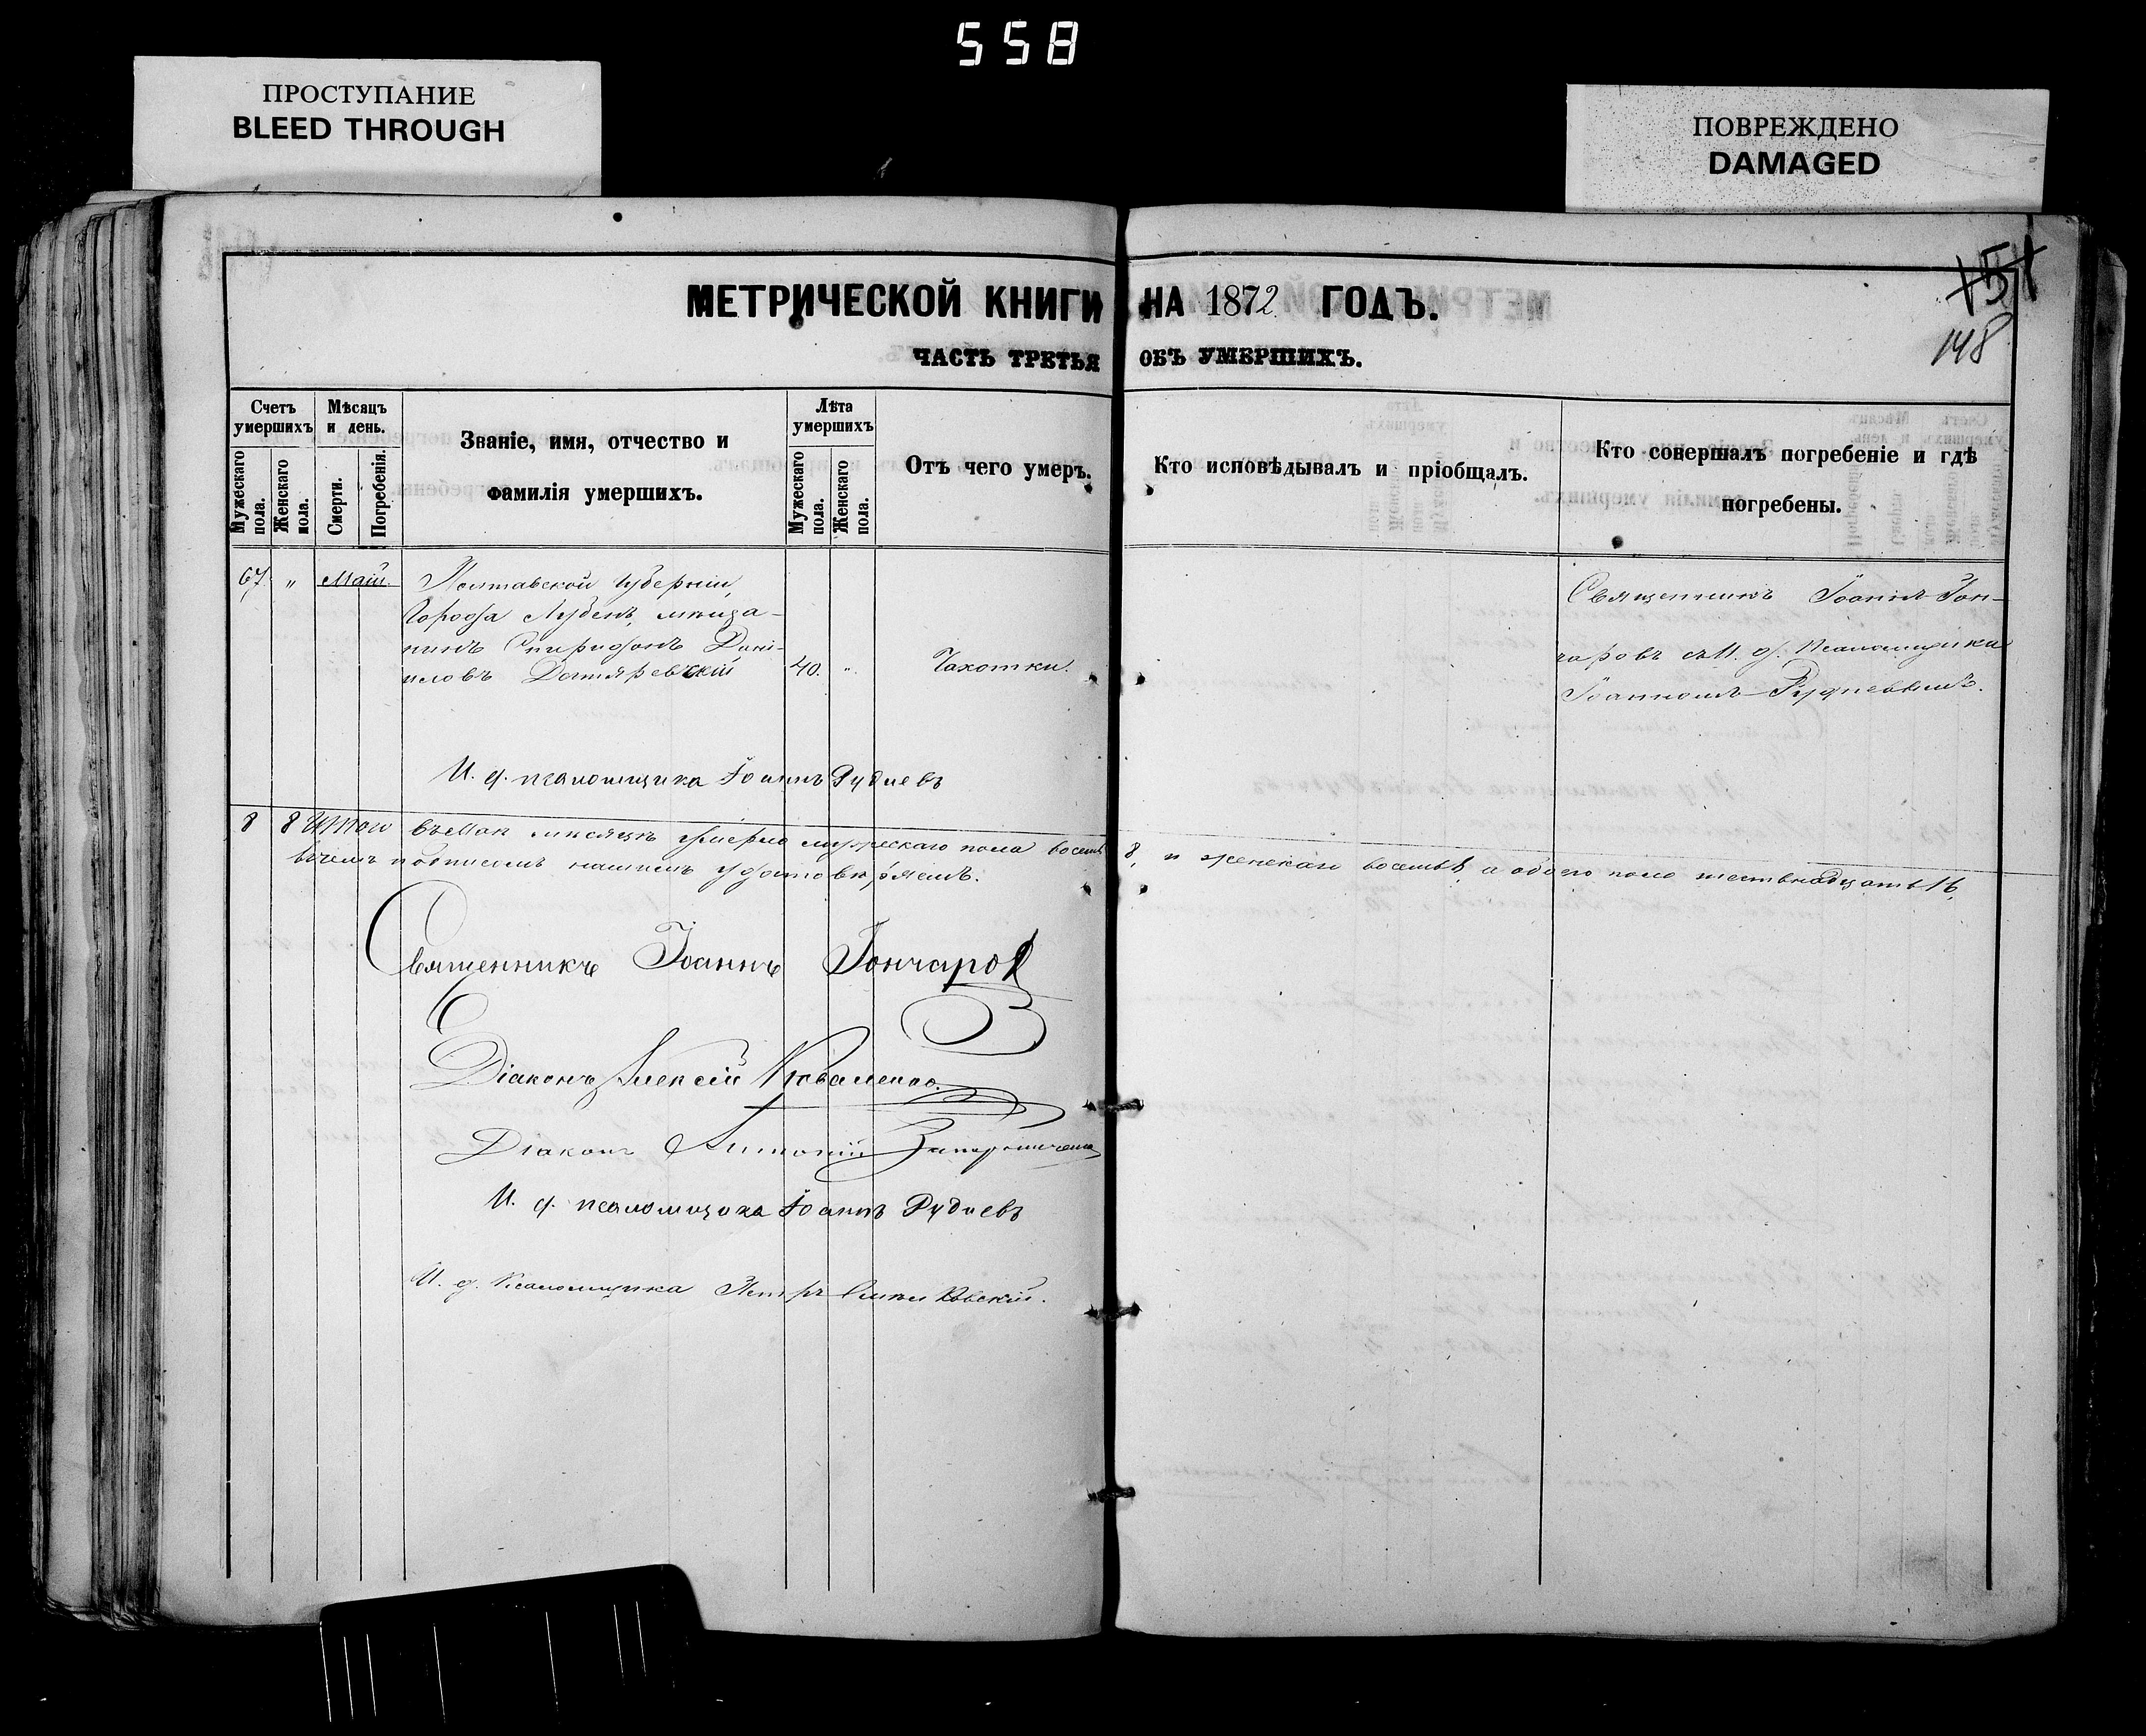 558
ПРОСТУПАНИЕ
BLEED THROUGH
ПОВРЕЖДЕНО
DAMAGED
151
148
МЕТРИЧЕСКОЙ КНИГИ НА 1872 ГОДЪ.
ЧАСТЬ ТРЕТЬЯ ОБЪ УМЕРШИХЪ.
Счетъ умершихъ
Мужескаго пола.
Женскаго пола.
Мѣсяцъ и день.
Смерти.
Погребенія.
Званіе, имя, отчество и
фамилія умершихъ.
Лѣта умершихъ
Мужескаго пола.
Женскаго пола.
Отъ чего умеръ.
Кто исповѣдывалъ и пріобщалъ.
Кто совершалъ погребеніе и гдѣ
погребены.
67 " Май. Полтавской губерніи,
города Лубенъ, мѣща-
нинъ Спиридонъ Дани-
иловъ Дегтяревскій 40. " Чахотки.
Священникъ Іоаннъ Гон-
чаровъ съ И. д. Псаломщика
Іоанномъ Рудневымъ.
И. д. псаломщика Іоаннъ Рудневъ
8 8 Итого въ Маѣ мѣсяцѣ умерло мужескаго пола восемь 8, и женскаго восемь 8, а обоего пола шестнадцать 16,
въ чемъ подписомъ нашимъ удостовѣряемъ.
Священникъ Іоаннъ Гончаровъ
Діаконъ Алексій Коваленко.
Діаконъ Антоній
И. д. псаломщика Іоаннъ Рудневъ
И. д. Псаломщика Петръ